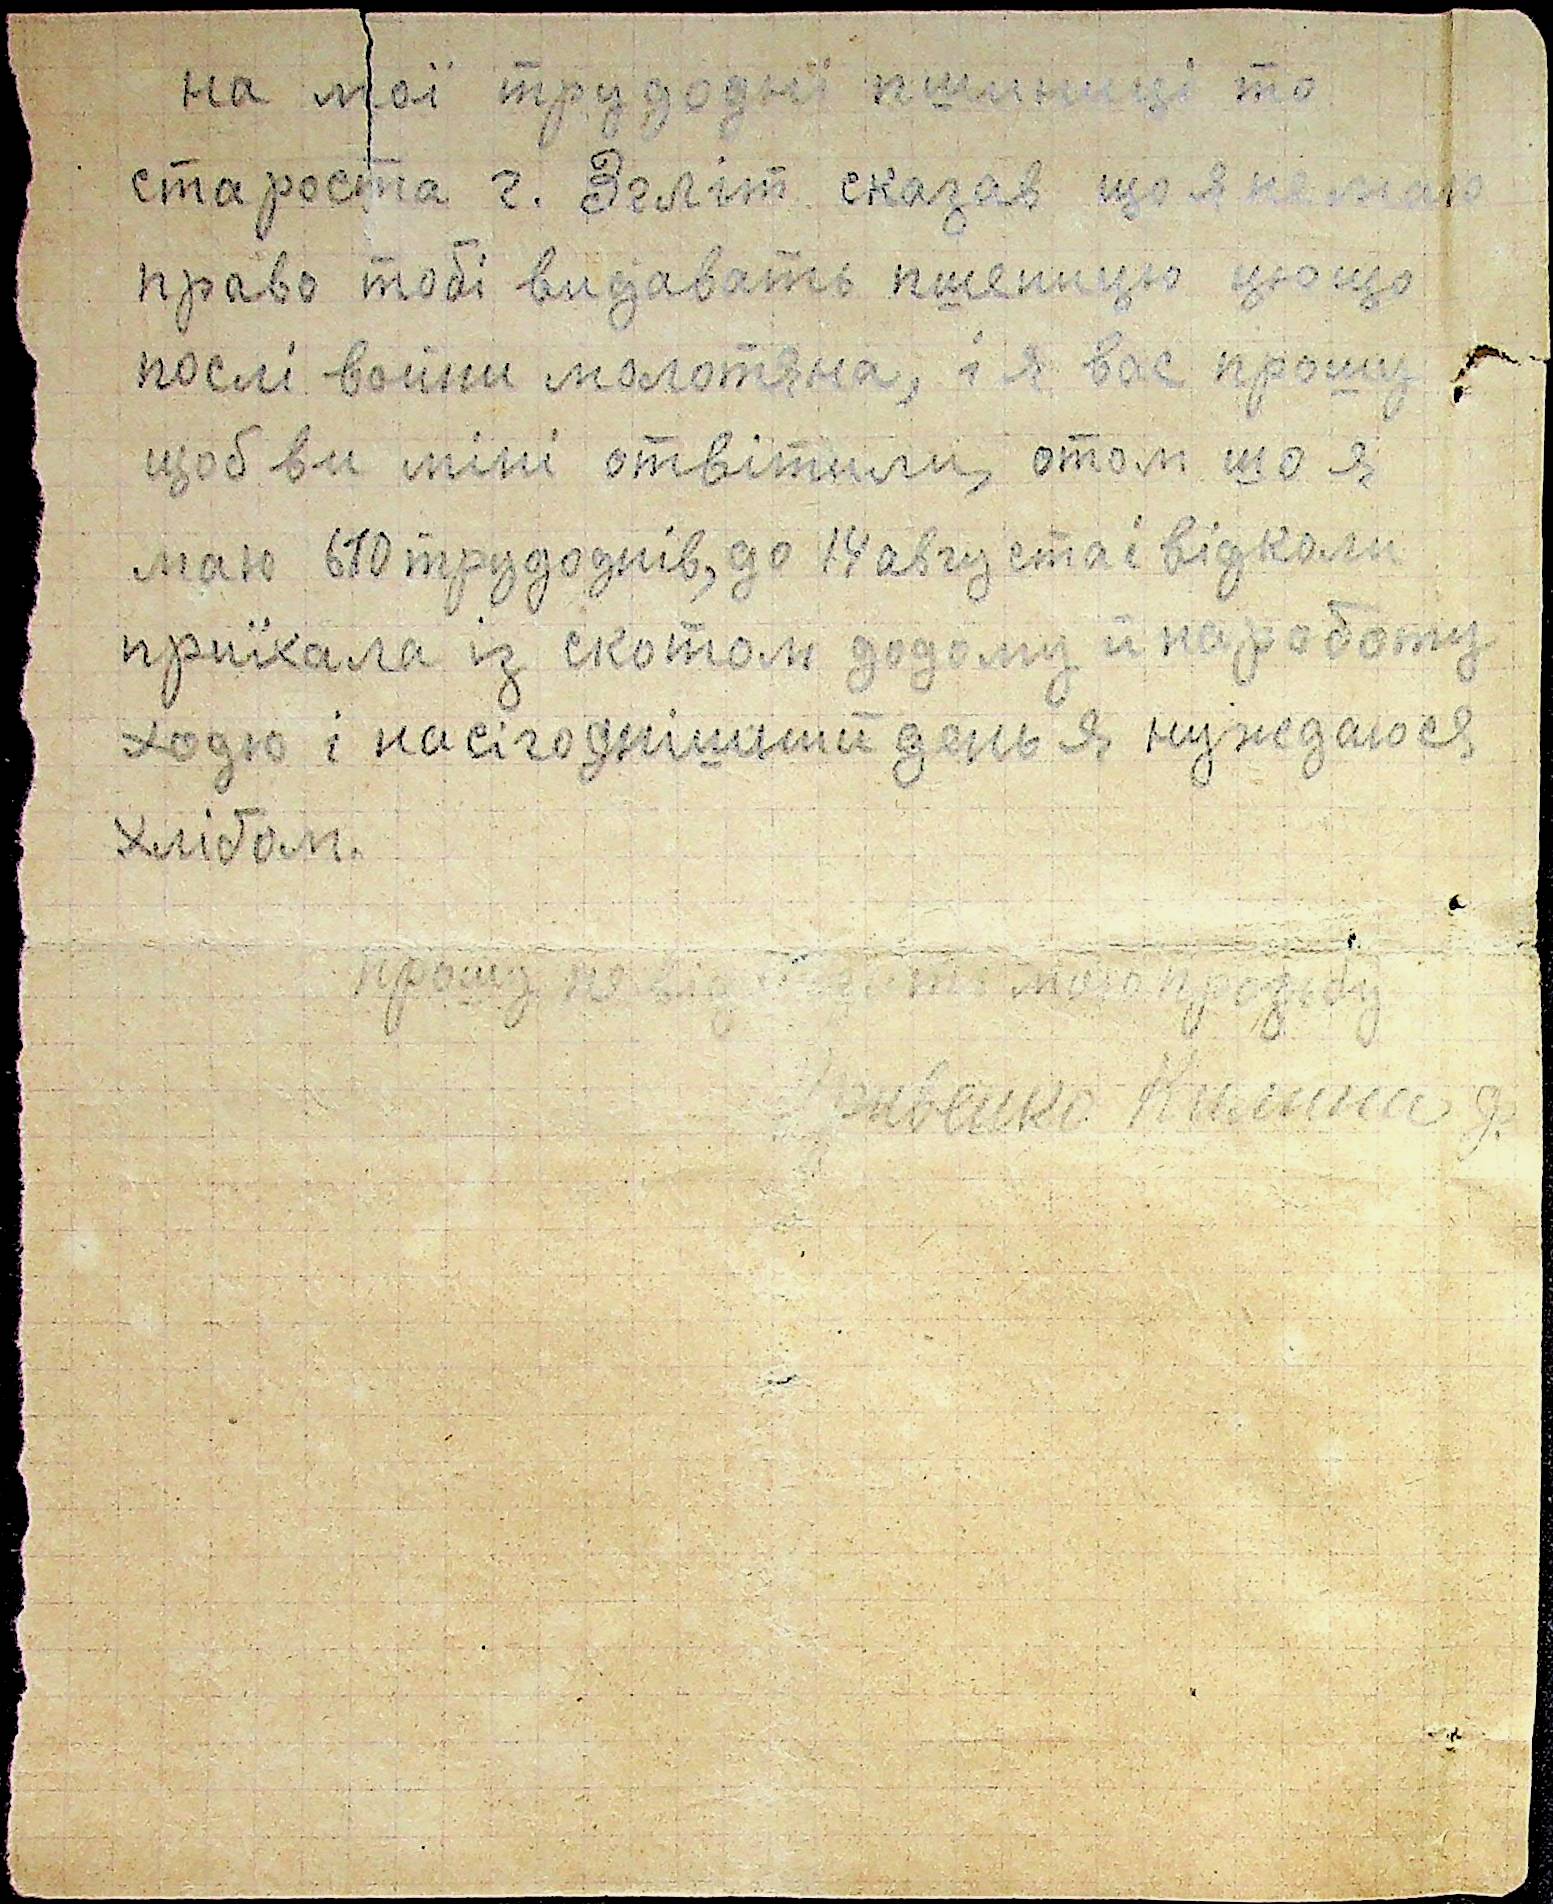 на мої трудодні пшиниці то
староста г. сказав що я немаю
право тобі видавать пшеницю цющо
послі войни молотяна, і я вас прошу
щоб ви міні отвітили, отом що я
маю 610 трудоднів, до 14 августа і відколи
приїхала із скотом додому й на роботу
ходю і на сігоднішний день я нуждаюся
хлібом.
прошу мою прозьбу
Килини Ф.